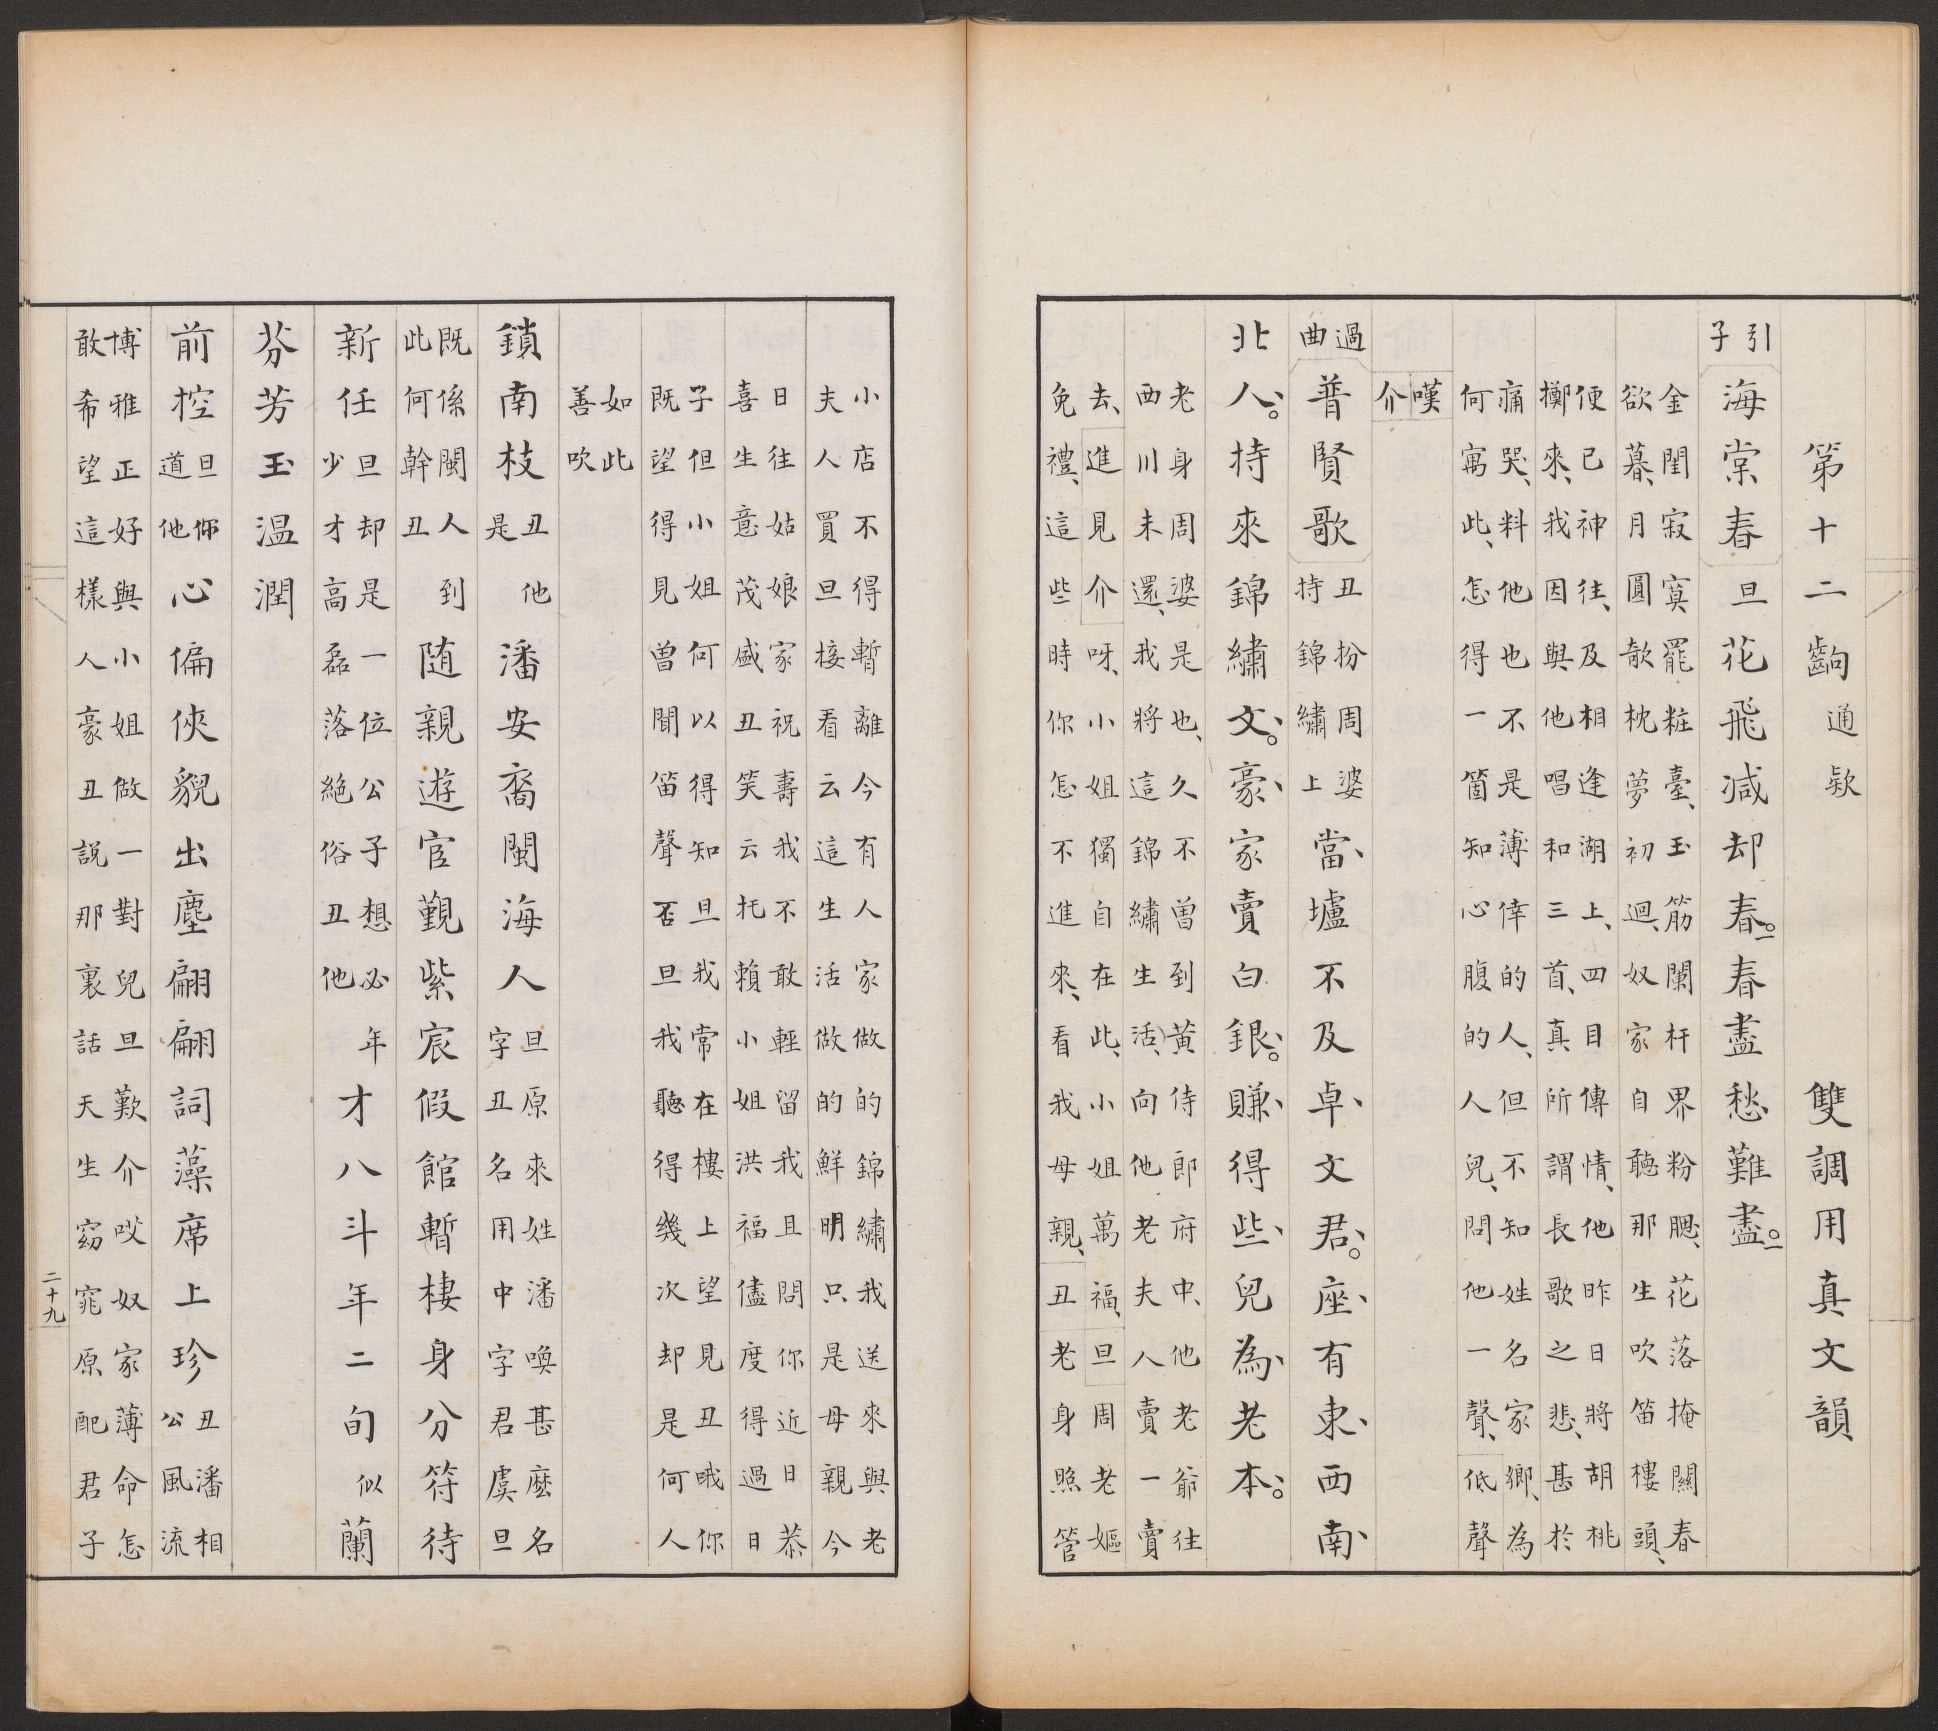 第十二齣 通欵 雙調用真文韻
引子 海棠春 旦 花飛減却春春盡愁難盡
金閨寂寞罷粧臺、玉筋闌杆界粉腮、花落掩關春
欲暮、月圓欹枕夢初迴、奴家自聽那生吹笛樓頭、
便已神往、及相逢湖上、四目傳情、他昨日將胡桃
擲來、我因與他唱和三首、真所謂長歌之悲、甚於
痛哭、料他也不是薄倖的人、但不知姓名家鄉、為
何寓此、怎得一箇知心腹的人兒、問他一聲、低聲
嘆介
過曲 普賢歌 丑扮周婆持錦繡上 當壚不及卓文君。座有東西南
北人。持來錦繡文。豪家賣白銀。賺得些兒為老本。
老身周婆是也、久不曾到黃侍郎府中、他老爺往
西川未還、我將這錦繡生活、向他老夫人賣一賣
去、進見介呀、小姐獨自在此、小姐萬福、旦周老嫗
免禮、這些時你怎不進來、看我母親、丑老身照管
小店不得暫離今有人家做的錦繡我送來與老
夫人買旦接看云這生活做的鮮明只是母親今
日往姑娘家祝壽我不敢輕留我且問你近日恭
喜生意茂盛丑笑云托賴小姐洪福儘度得過日
子但小姐何以得知旦我常在樓上望見丑哦你
既望得見曾聞笛聲否旦我聽得幾次却是何人
如此
善吹
鎖南枝 丑他是 潘安裔閩海人 旦原來姓潘喚甚麼名字丑名用中字君虞旦
既係閩人到此何幹丑 随親遊官覲紫宸假館暫棲身分符待
新任 旦却是一位公子想必年少才高磊落絕俗丑他 才八斗年二旬似蘭
芬芳玉温潤
前控 旦你道他 心偏俠貌出塵翩翩詞藻席上珍 丑潘相公風流
博雅正好與小姐做一對兒旦歎介哎奴家薄命怎
敢希望這樣人豪丑説那裏話天生窈窕原配君子
二十九